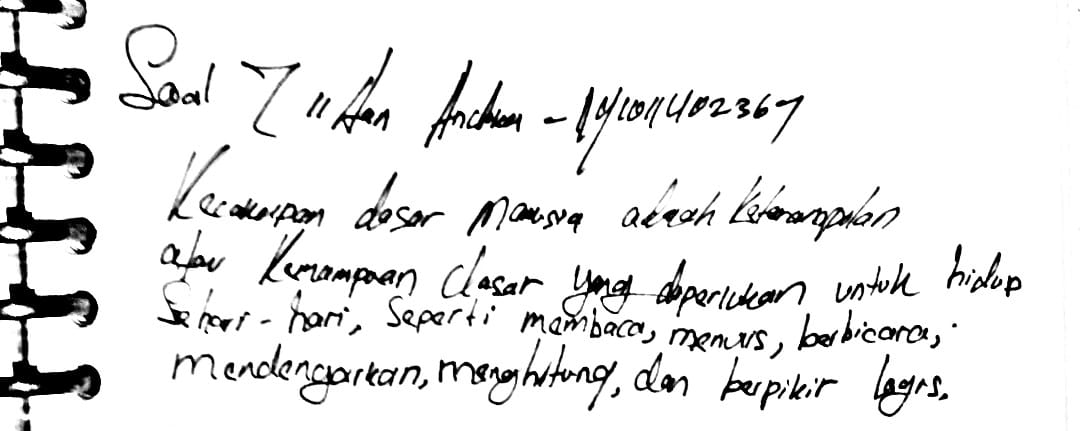 Soal 7 "Aan
Kecakapan dasar manusia adalah keterampilan
atau kemampuan dasar yang diperlukan untuk hidup
sehari-hari, seperti membaca, menulis, berbicara,
mendengarkan, menghitung, dan berpikir logis.